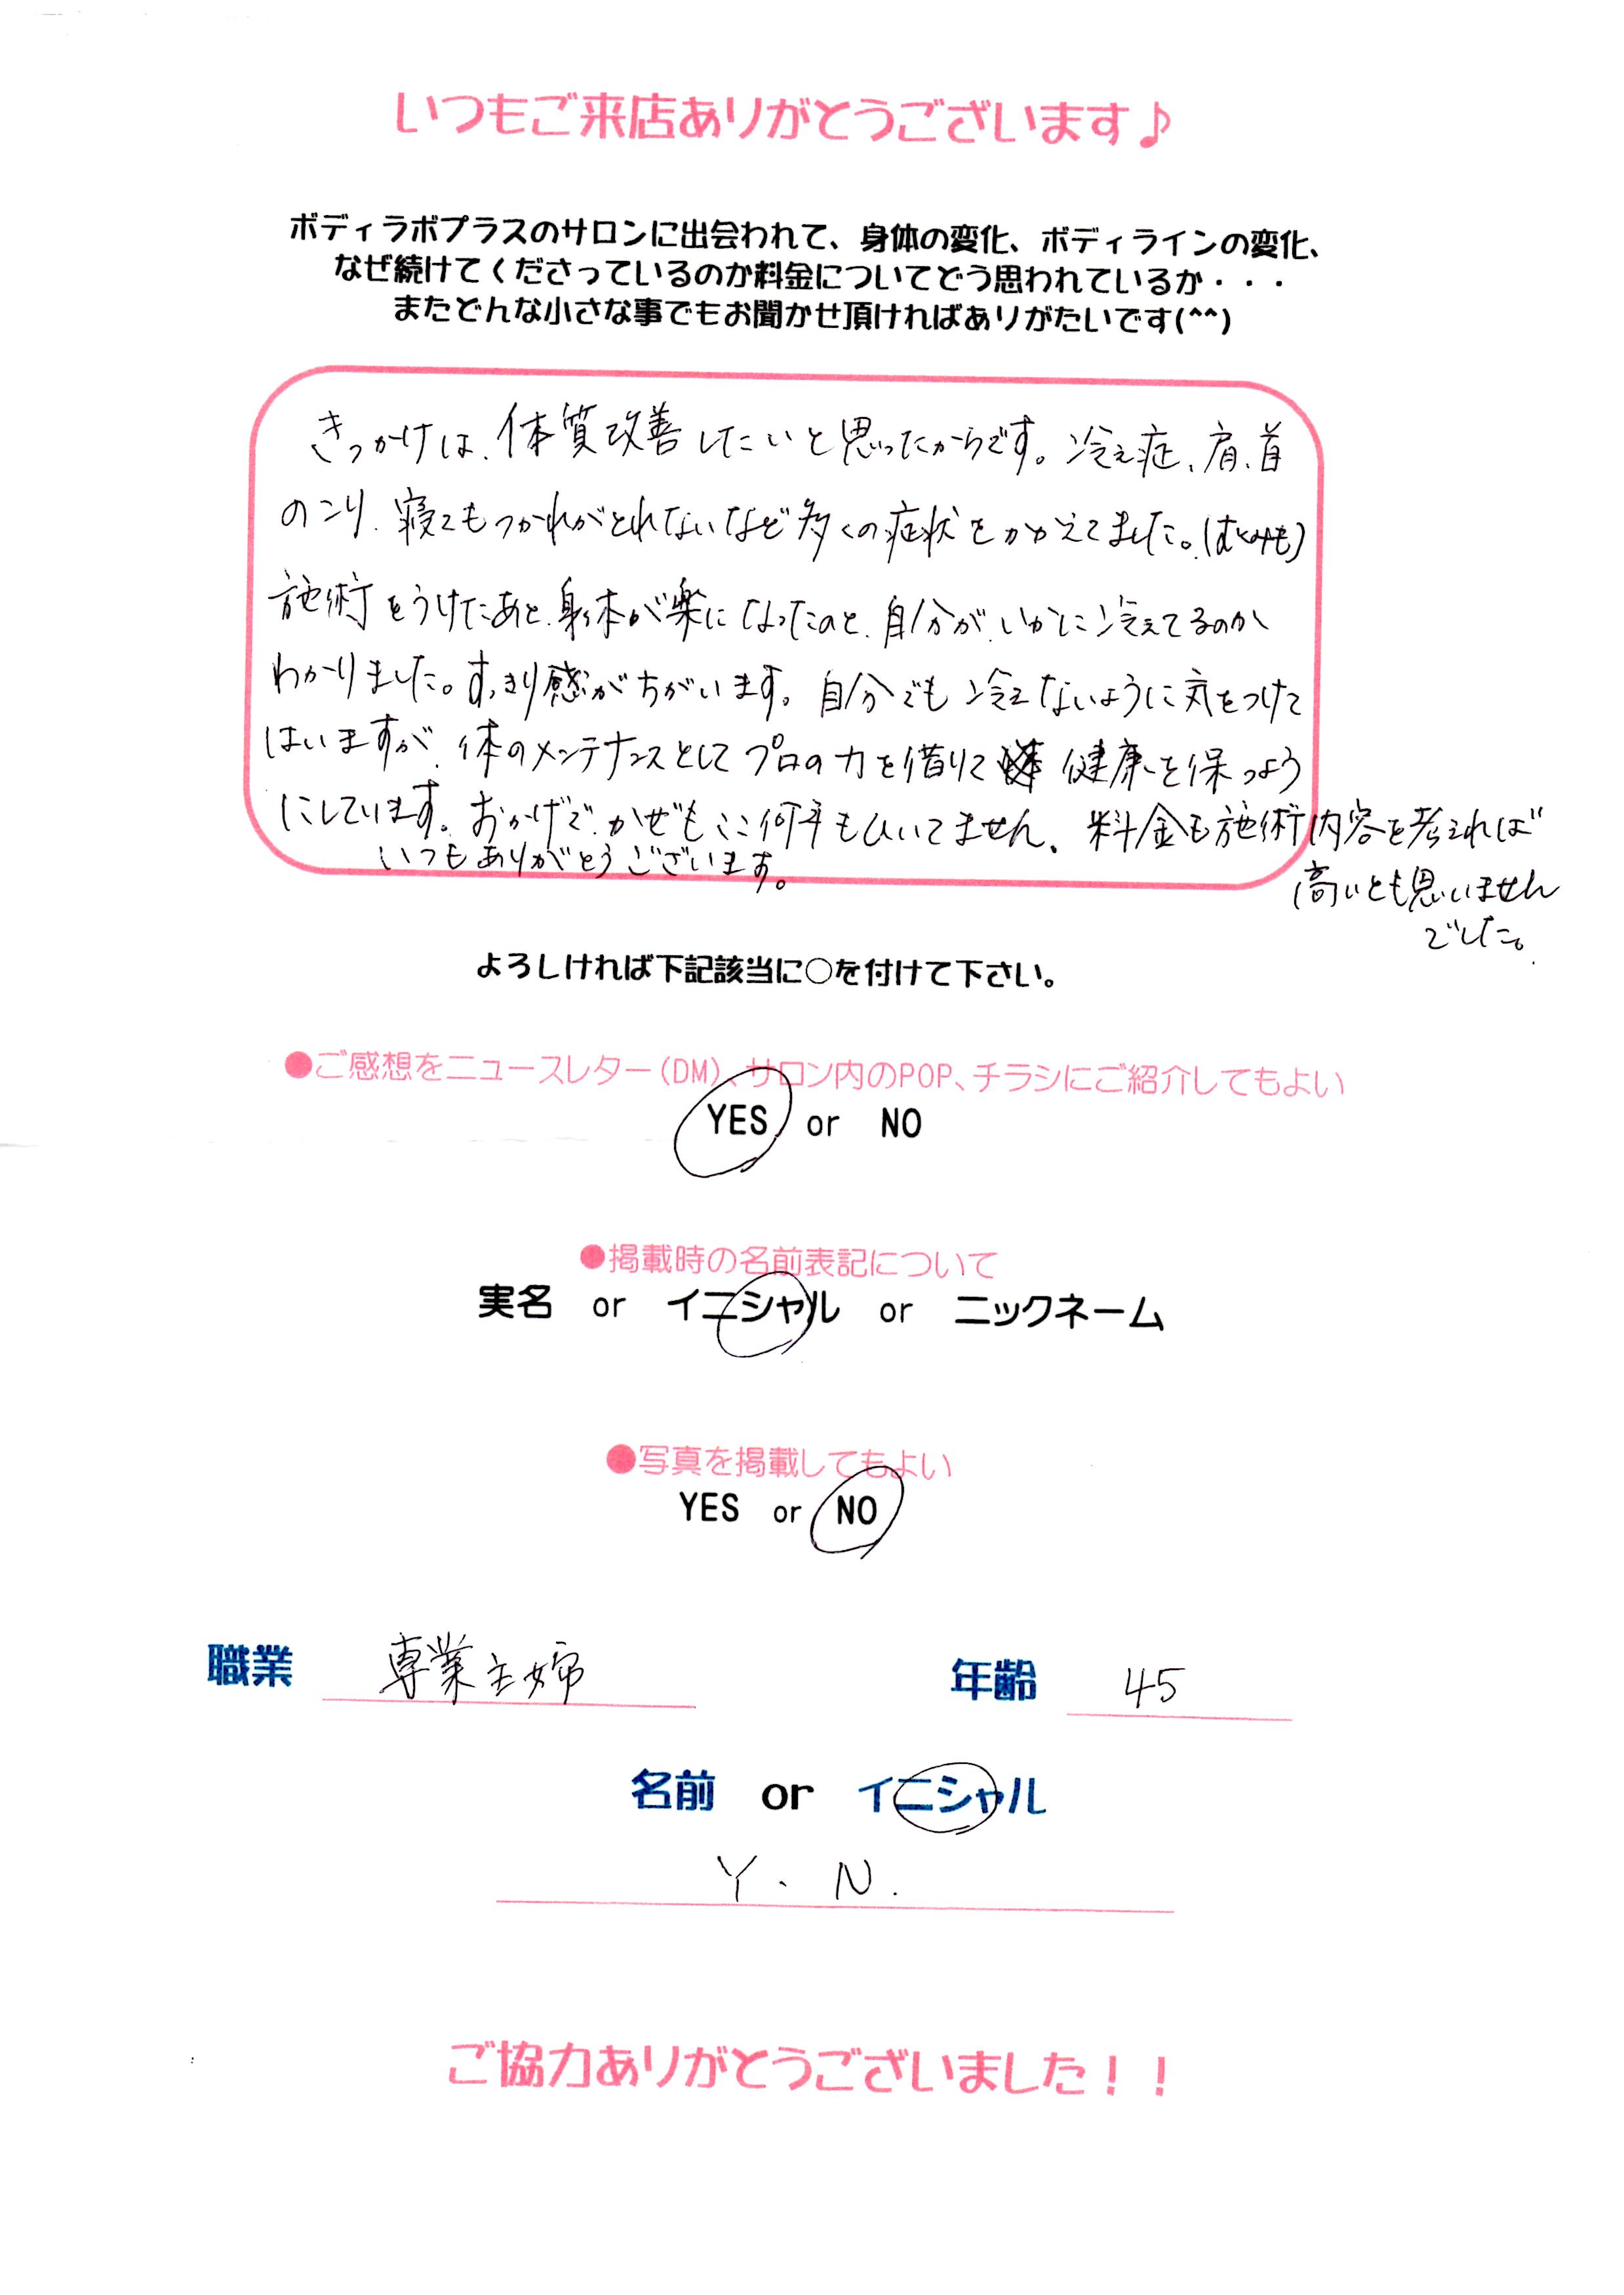 いつもご来店ありがとうございます♪
ボディラボプラスのサロンに出会われて、身体の変化、ボディラインの変化、
なぜ続けてくださっているのか料金についてどう思われているか・・・
またどんな小さな事でもお聞かせ頂ければありがたいです(^^)
きっかけは、体質改善したいと思ったからです。冷え症、肩、首
のこり、寝てもつかれがとれないなど多くの症状をかかえてました。(むくみも)
施術をうけたあと、身体が楽になったのと、自分が、いかに冷えてるのか
わかりました。すっきり感がちがいます。自分でも冷えないように気をつけて
はいますが、体のメンテナンスとしてプロの力を借りて健康を保つよう
にしています。おかげで、かぜもここ何年もひいてません。料金も施術内容を考えれば
高いとも思いません
でした。
いつもありがとうございます。
よろしければ下記該当に○を付けて下さい。
●ご感想をニュースレター(DM)、サロン内のPOP、チラシにご紹介してもよい
YES or NO
●掲載時の名前表記について
実名 or イニシャル or ニックネーム
●写真を掲載してもよい
YES or NO
職業 専業主婦 年齢 45
名前 or イニシャル
Y. N.
ご協力ありがとうございました！！